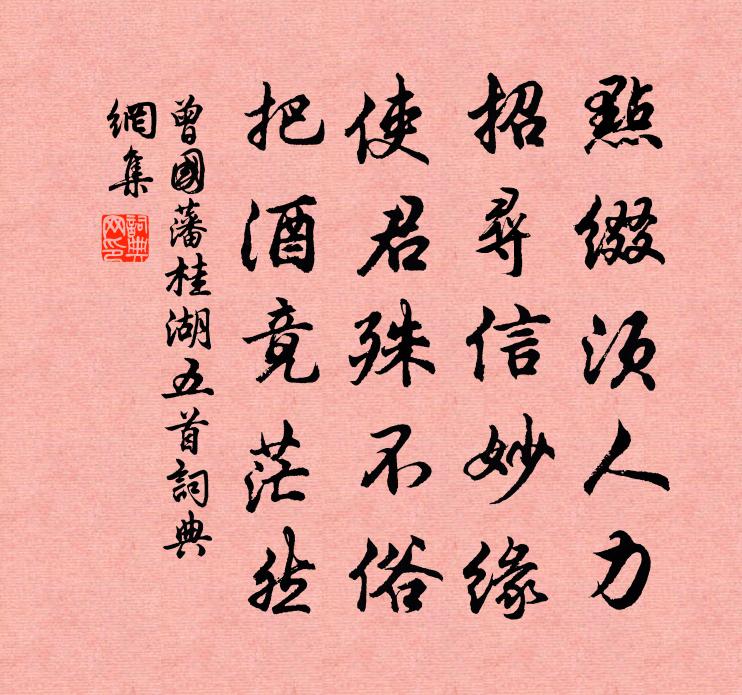 點綴須人力
招尋信妙緣
使君殊不俗
把酒竟茫然
曾國藩桂湖五首詞典
網集
詞典網印